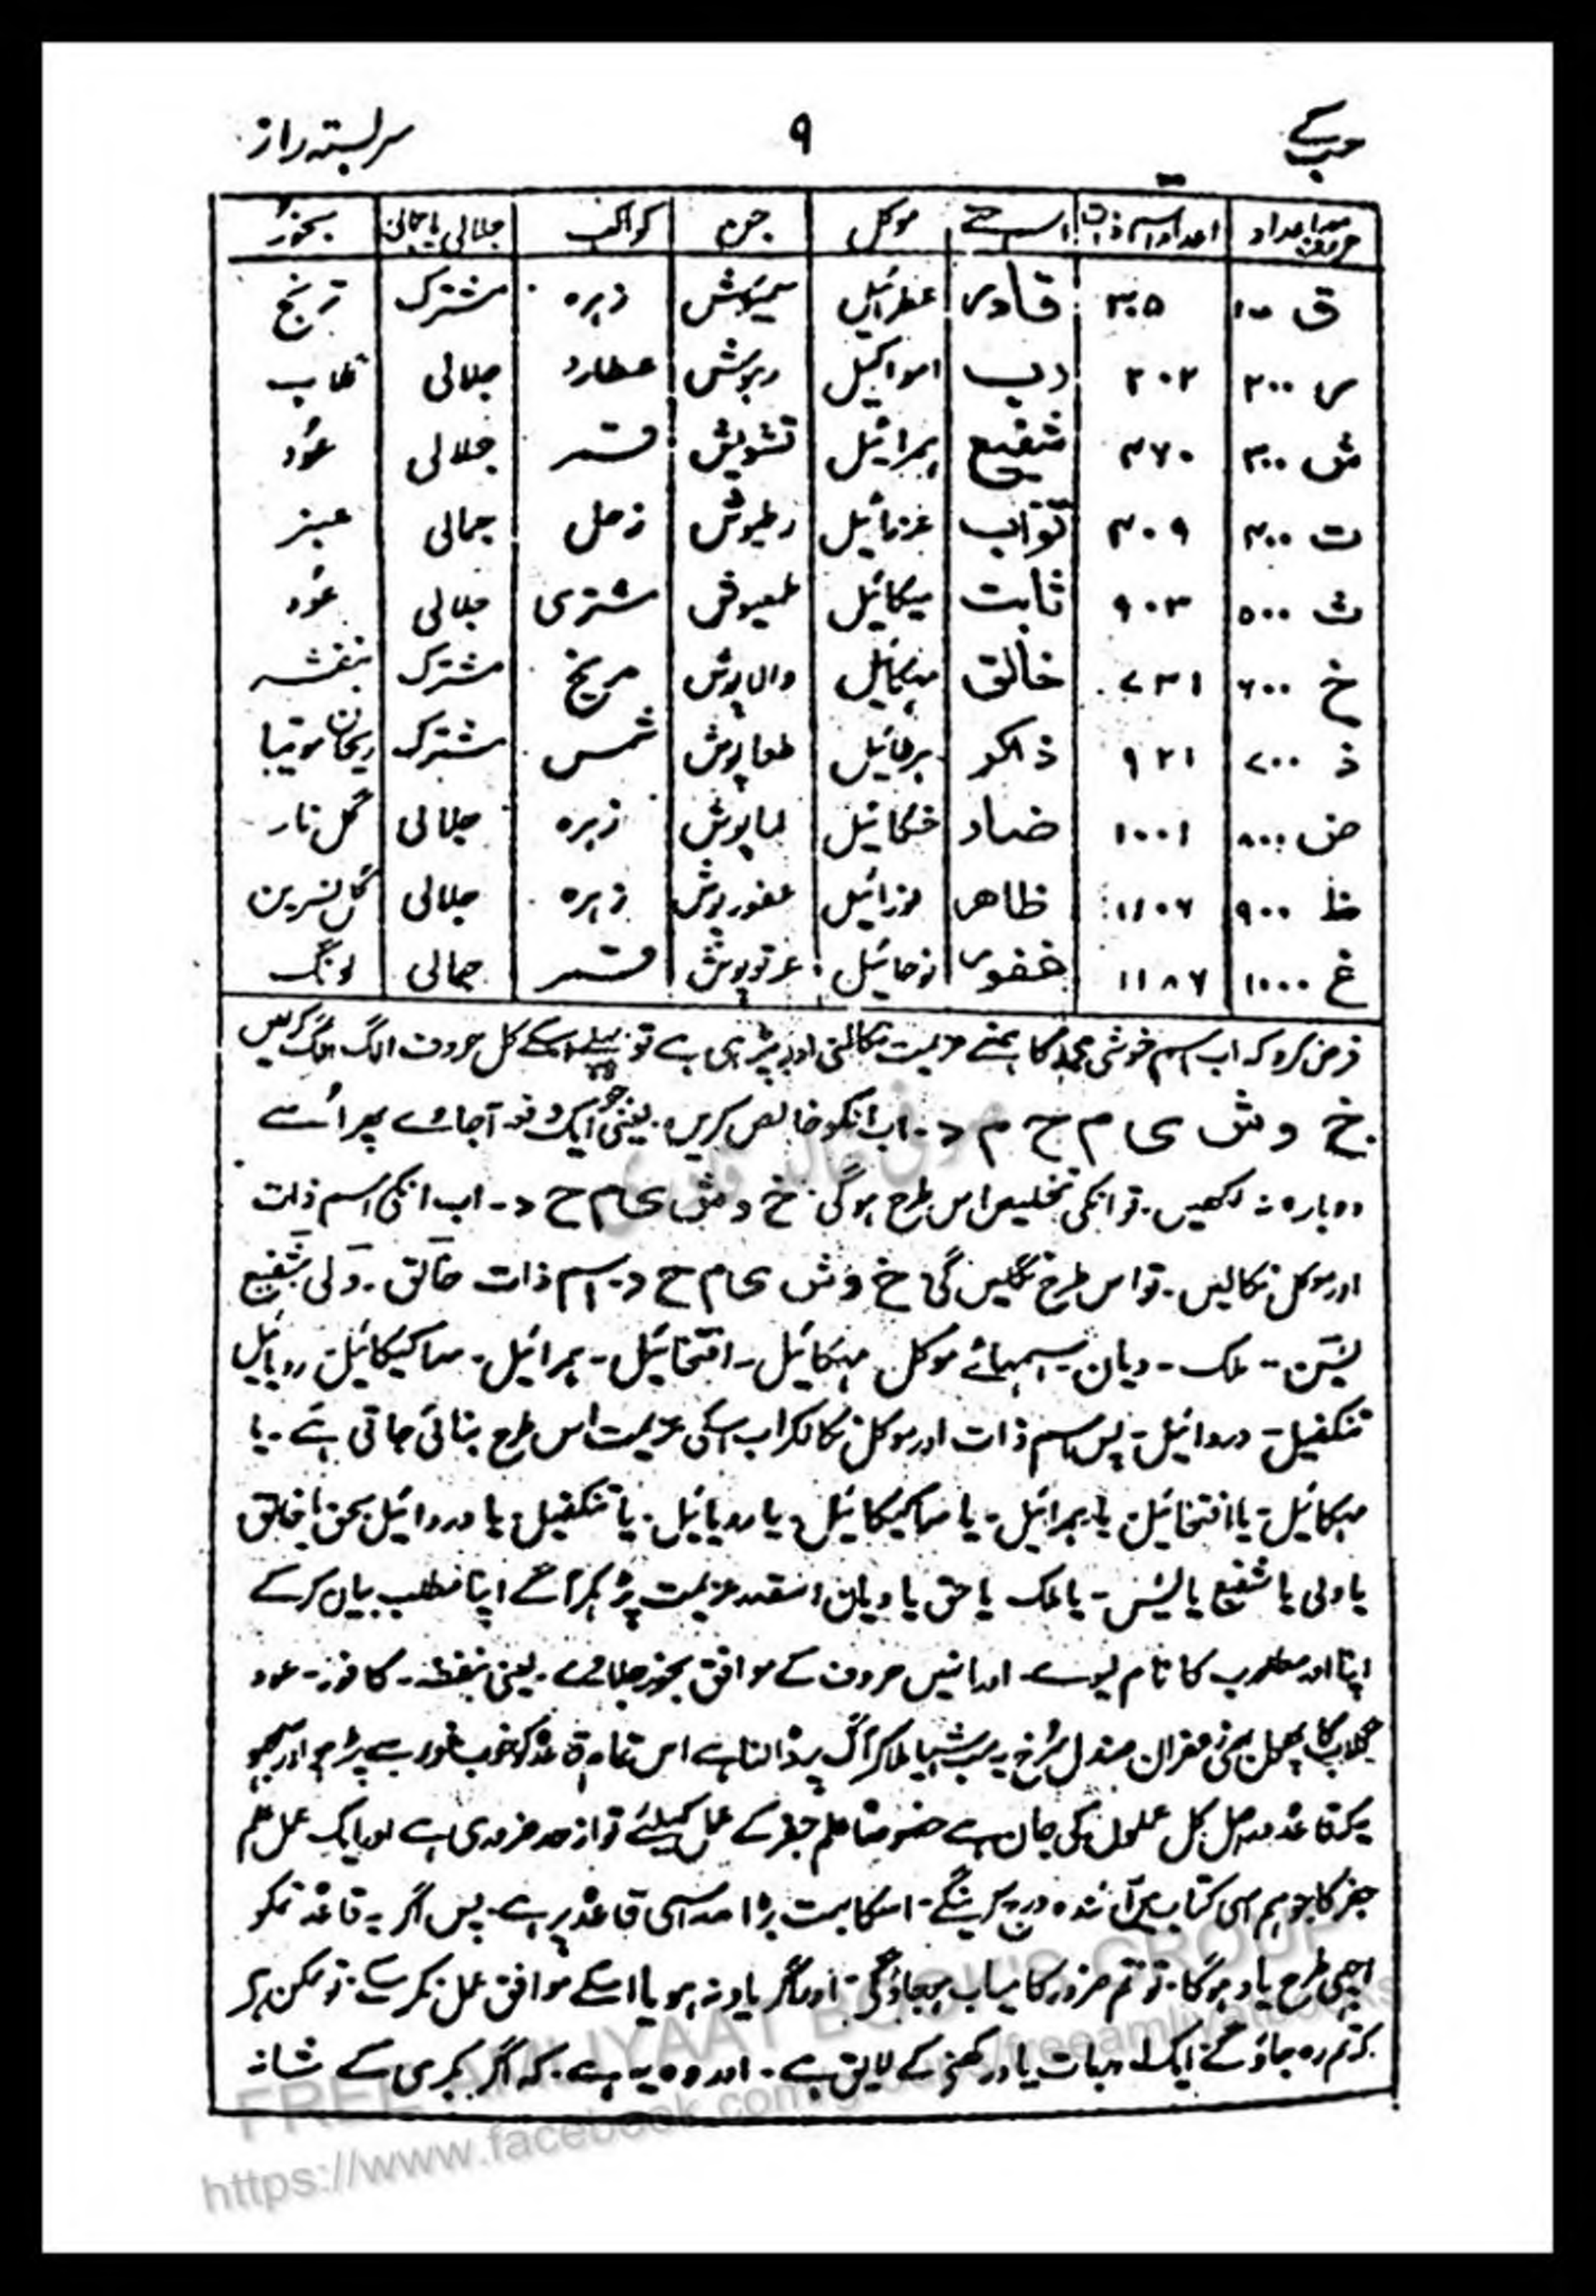 حب کے ۹ سربستہ راز
حروف معہ اعداد اعداد اسم ذات اسمائے موکل جن کواکب جلالی یا جمالی بخور
ق ۱۰۰ ۳۰۵ قادر عطرائیل شمیوش زہرہ مشترک ترنج
ر ۲۰۰ ۲۰۲ رب امواکیل ربوش عطارد جلالی گلاب
ش ۳۰۰ ۴۶۰ شفیع ہمرائیل تشویش قمر جلالی عود
ت ۴۰۰ ۴۰۹ تواب عزرائیل رطیوش زحل جمالی عبنر
ث ۵۰۰ ۹۰۳ ثابت میکائیل طمیوش مشتری جلالی عود
خ ۶۰۰ ۷۳۱ خالق مہکائیل والاپوش مریخ مشترک بنفشہ
ذ ۷۰۰ ۹۲۱ ذاکر ہرطائیل طعاپوش شمس مشترک ریحان موتیا
ض ۸۰۰ ۱۰۰۱ ضاد عکائیل لماپوش زہرہ جلالی گل نار
ظ ۹۰۰ ۱۱۰۶ ظاھر نورائیل عفورپوش زہرہ جلالی گل نسرین
غ ۱۰۰۰ ۱۱۸۶ غفور نوحائیل عرتوپوش قمر جمالی لونگ
فرض کرو کہ اب اسم خوشی محمد کا ہمنے عزیمت نکالنی اور پڑہی ہے تو پہلے اسکے کل حروف الگ الگ کریں
خ و ش ی م ح م د ۔ اب انکو خالص کریں ۔ یعنی جو ایک دفعہ آجائے پھر اُسے
دوبارہ نہ لکھیں ۔ تو انکی تخلیص اس طرح ہوگی ۔ خ و ش ی م ح د ۔ اب انکی اسم ذات
اور موکل نکالیں ۔ تو اس طرح نکلیں گی خ و ش ی م ح د ۔ اسم ذات خالق ۔ ولی شفیع
یٰسین ۔ ملک ۔ دیان ۔ اسمہائے موکل مہکائیل ۔ افتخائیل ۔ ہمرائیل ۔ سراکیکائیل ۔ رویائیل
تنکفیل ۔ دردائیل ۔ پس اسم ذات اور موکل نکالکر اب اسکی عزیمت اس طرح بنائی جاتی ہے ۔ یا
مہکائیل ۔ یا افتخائیل ۔ یا ہمرائیل ۔ یا سراکیکائیل ۔ یا رویائیل ۔ یا تنکفیل ۔ یا دردائیل بحق یا خالق
یا ولی یا شفیع یا یٰسین ۔ یا ملک یا حق یا دیان اسقدر عزیمت پڑہکر آگے اپنا مطلب بیان کرکے
اپنا اور مطلوب کا نام لیوے ۔ اور انہیں حروف کے موافق بخور جلائے ۔ یعنی بنفشہ ۔ کافور ۔ عود
گلاب کا پھول زعفران صندل سُرخ یہ سب اشیا ملا کر آگ پر ڈالنا ہے اس تمام قاعدٔہ کو خوب غور سے پڑہو اور سمجھو
یہ قاعدٔہ دراصل کل عملوں کی جان ہے خصوصاً علم جفر کے عمل کیلئے تو ازحد ضروری ہے اور ایک عمل علم
جفر کا جو ہم اسی کتاب میں آئندہ درج کرینگے ۔ اسکا بہت بڑا مدار اسی قاعدٔہ پر ہے ۔ پس اگر یہ قاعدہ تمکو
اچھی طرح یاد ہوگا ۔ تو تم ضرور کامیاب ہوجاؤگے ۔ اور اگر یاد نہ ہو یا اسکے موافق عمل نکرے ۔ تو ممکن ہے
کہ تم رہ جاؤگے ایک اور بات یاد رکھنے کے لایق ہے ۔ اور وہ یہ ہے ۔ کہ اگر بکری کے شانہ
FREE AMLIYAAT BOOK'S GROUP
https://www.facebook.com/groups/freeamliyatbooks